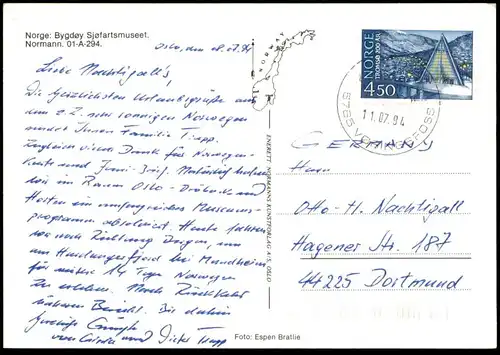 Norge: Bygdøy Sjøfartsmuseet.
Normann. 01-A-294.
Oslo, den 08.07.94
Liebe Nachtigall's,
Die herzlichsten Urlaubsgrüße aus
dem z.Z. sehr sonnigen Norwegen
sendet Ihnen Familie Trapp.
Zugleich vielen Dank für Norwegen-
Karte und Juni-Brief. Natürlich haben
wir im Raum Oslo - Drøbak und
Horten ein umfangreiches Museums-
programm absolviert. Heute fahren
wir nach Richtung Bergen, um
am Hardangerfjord bei
für weitere 14 Tage Norwegen
zu erleben. Nach Rückkehr
näheren Bericht. Bis dahin
Grüße
von und Trapp
NORWAY
ENERETT NORMANNS KUNSTFORLAG, A/S, OSLO
Foto: Espen Bratlie
NORGE
TROMSDALEN KIRKE
450
11.07.94
GERMANY
Herrn
Otto-H. Nachtigall
Hagener Str. 187
44225 Dortmund